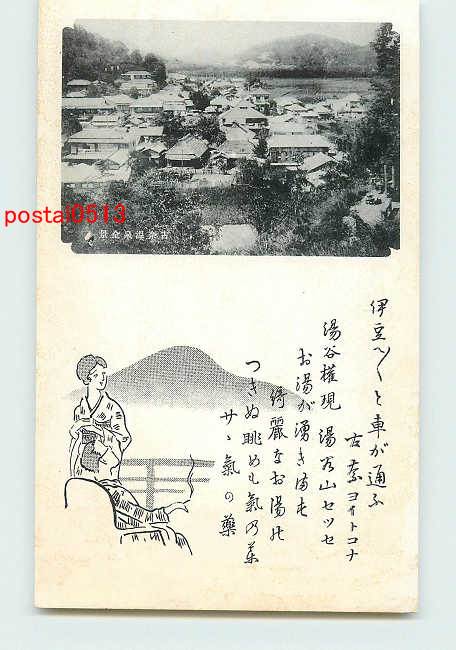 古奈温泉全景
postal0513
伊豆〳〵と車が通ふ
古奈ヨイトコナ
湯谷権現 湯谷山セッセ
お湯が湧き
綺麗なお湯
つきぬ眺めも氣の薬
サヽ氣の藥